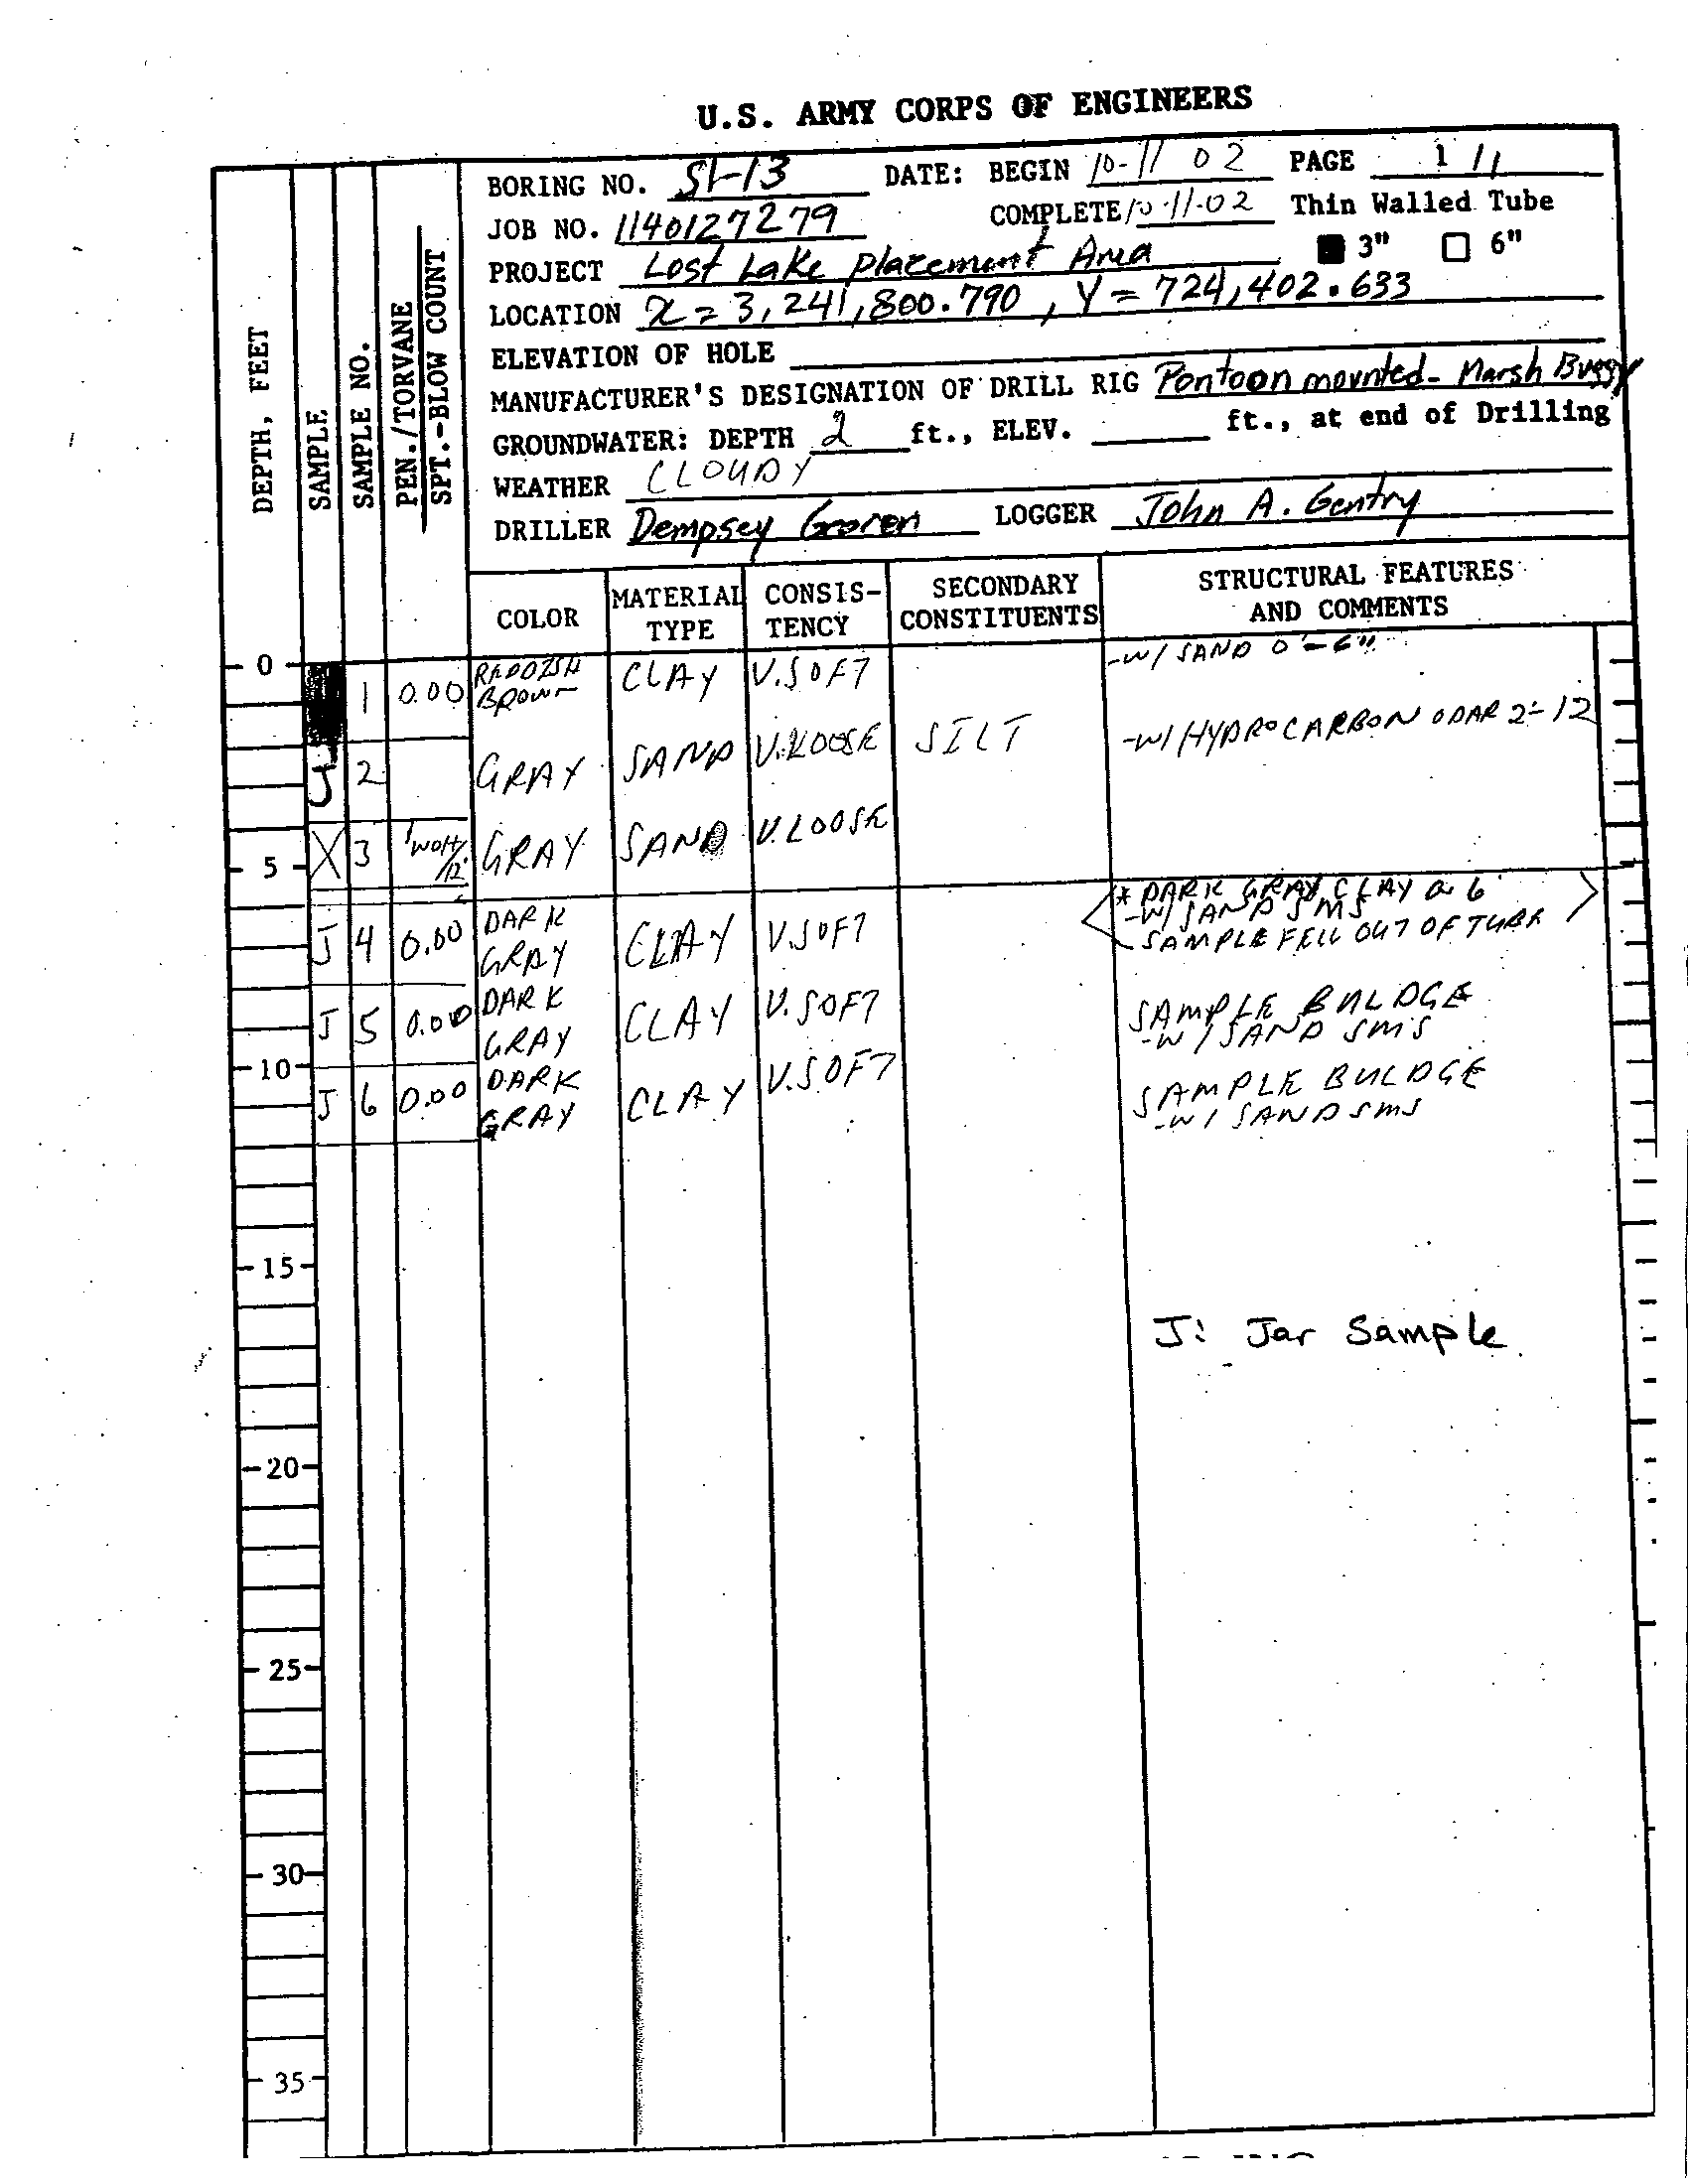 U.S. ARMY CORPS OF ENGINEERS
BORING NO. SI-13 DATE: BEGIN 10-11 02 PAGE 1 / 1
JOB NO. 1140127279 COMPLETE 10-11-02 Thin Walled Tube
PROJECT Lost Lake Placement Area ■ 3" □ 6"
LOCATION X = 3,241,800.790, Y = 724,402.633
ELEVATION OF HOLE
MANUFACTURER'S DESIGNATION OF DRILL RIG Pontoon mounted - Marsh Buggy
GROUNDWATER: DEPTH 2 ft., ELEV. ft., at end of Drilling
WEATHER CLOUDY
DRILLER Dempsey LOGGER John A. Gentry
DEPTH, FEET
SAMPLE
SAMPLE NO.
PEN./TORVANE
SPT.-BLOW COUNT
COLOR MATERIAL TYPE CONSIS-TENCY SECONDARY CONSTITUENTS STRUCTURAL FEATURES AND COMMENTS
0 1 0.00 REDDISH BROWN CLAY V.SOFT -W/ SAND 0'-6"
J 2 GRAY SAND V.LOOSE SILT -W/ HYDROCARBON ODAR 2'-12
5 X 3 1 WOH/12" GRAY SAND V.LOOSE
* DARK GRAY CLAY @ 6'
-W/ SAND SMS
J 4 0.00 DARK GRAY CLAY V.SOFT SAMPLE FELL OUT OF TUBE
J 5 0.00 DARK GRAY CLAY V.SOFT SAMPLE BULDGE
-W/ SAND SMS
10 J 6 0.00 DARK GRAY CLAY V.SOFT SAMPLE BULDGE
-W/ SAND SMS
15
J: Jar Sample
20
25
30
35